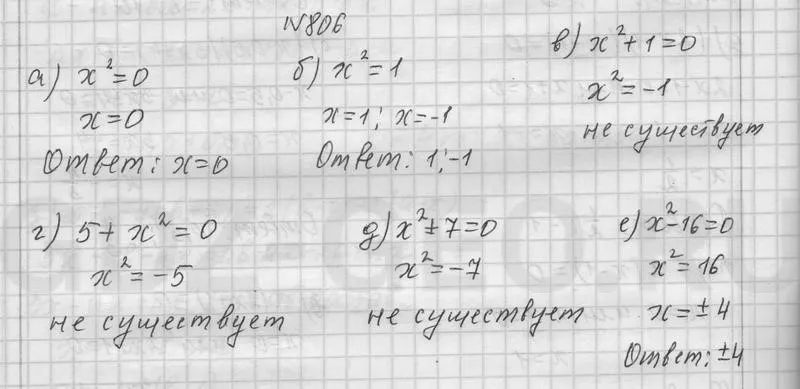 №806
а) x²=0
x=0
Ответ: x=0
б) x²=1
x=1; x=-1
Ответ: 1;-1
в) x²+1=0
x²=-1
не существует
г) 5+x²=0
x²=-5
не существует
д) x²+7=0
x²=-7
не существует
е) x²-16=0
x²=16
x=±4
Ответ: ±4